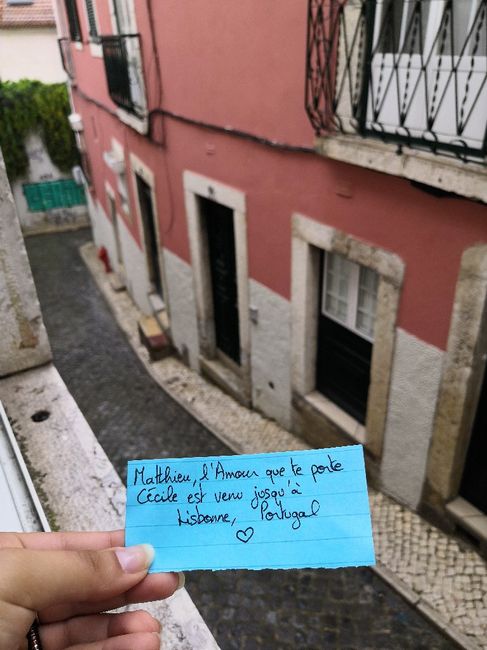 Matthieu, l'Amour que te porte
Cécile est venu jusqu'à
Lisbonne, Portugal
♡